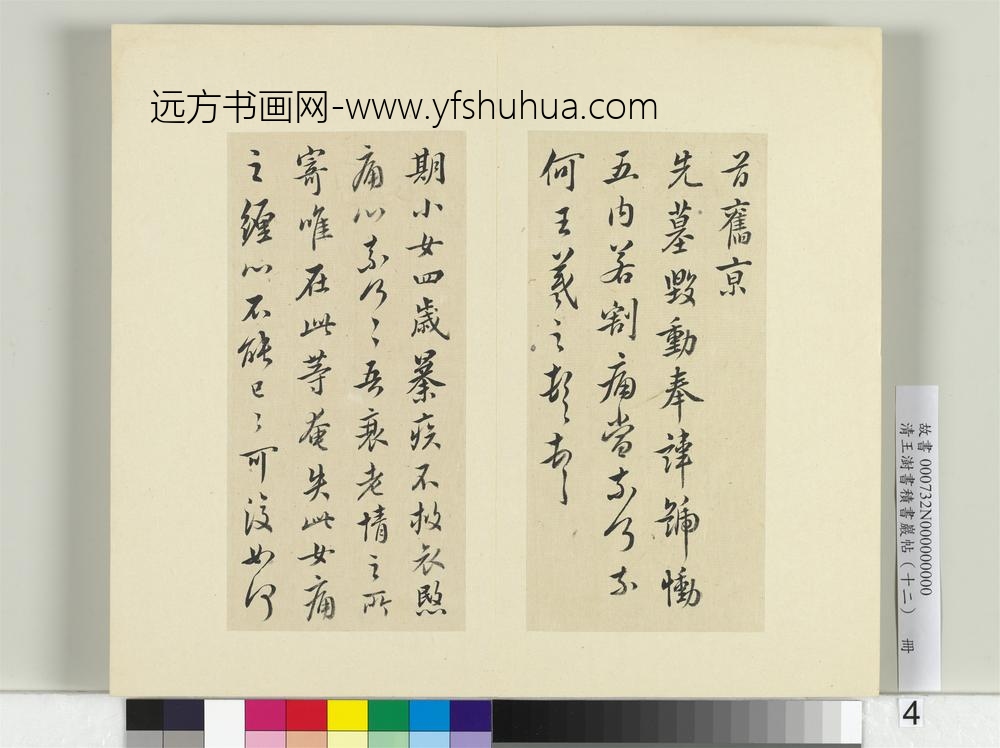 远方书画网-www.yfshuhua.com
舊京
先墓毀動奉諱號慟
五内若割痛當奈何奈
何王羲之頓首
期小女四歲暴疾不救哀愍
痛心奈何〻吾衰老情之所
寄唯在此等奄失此女痛
之纏心不能已〻可復如何
故書 000732N000000000
清王澍書積書巖帖（十二） 冊
4